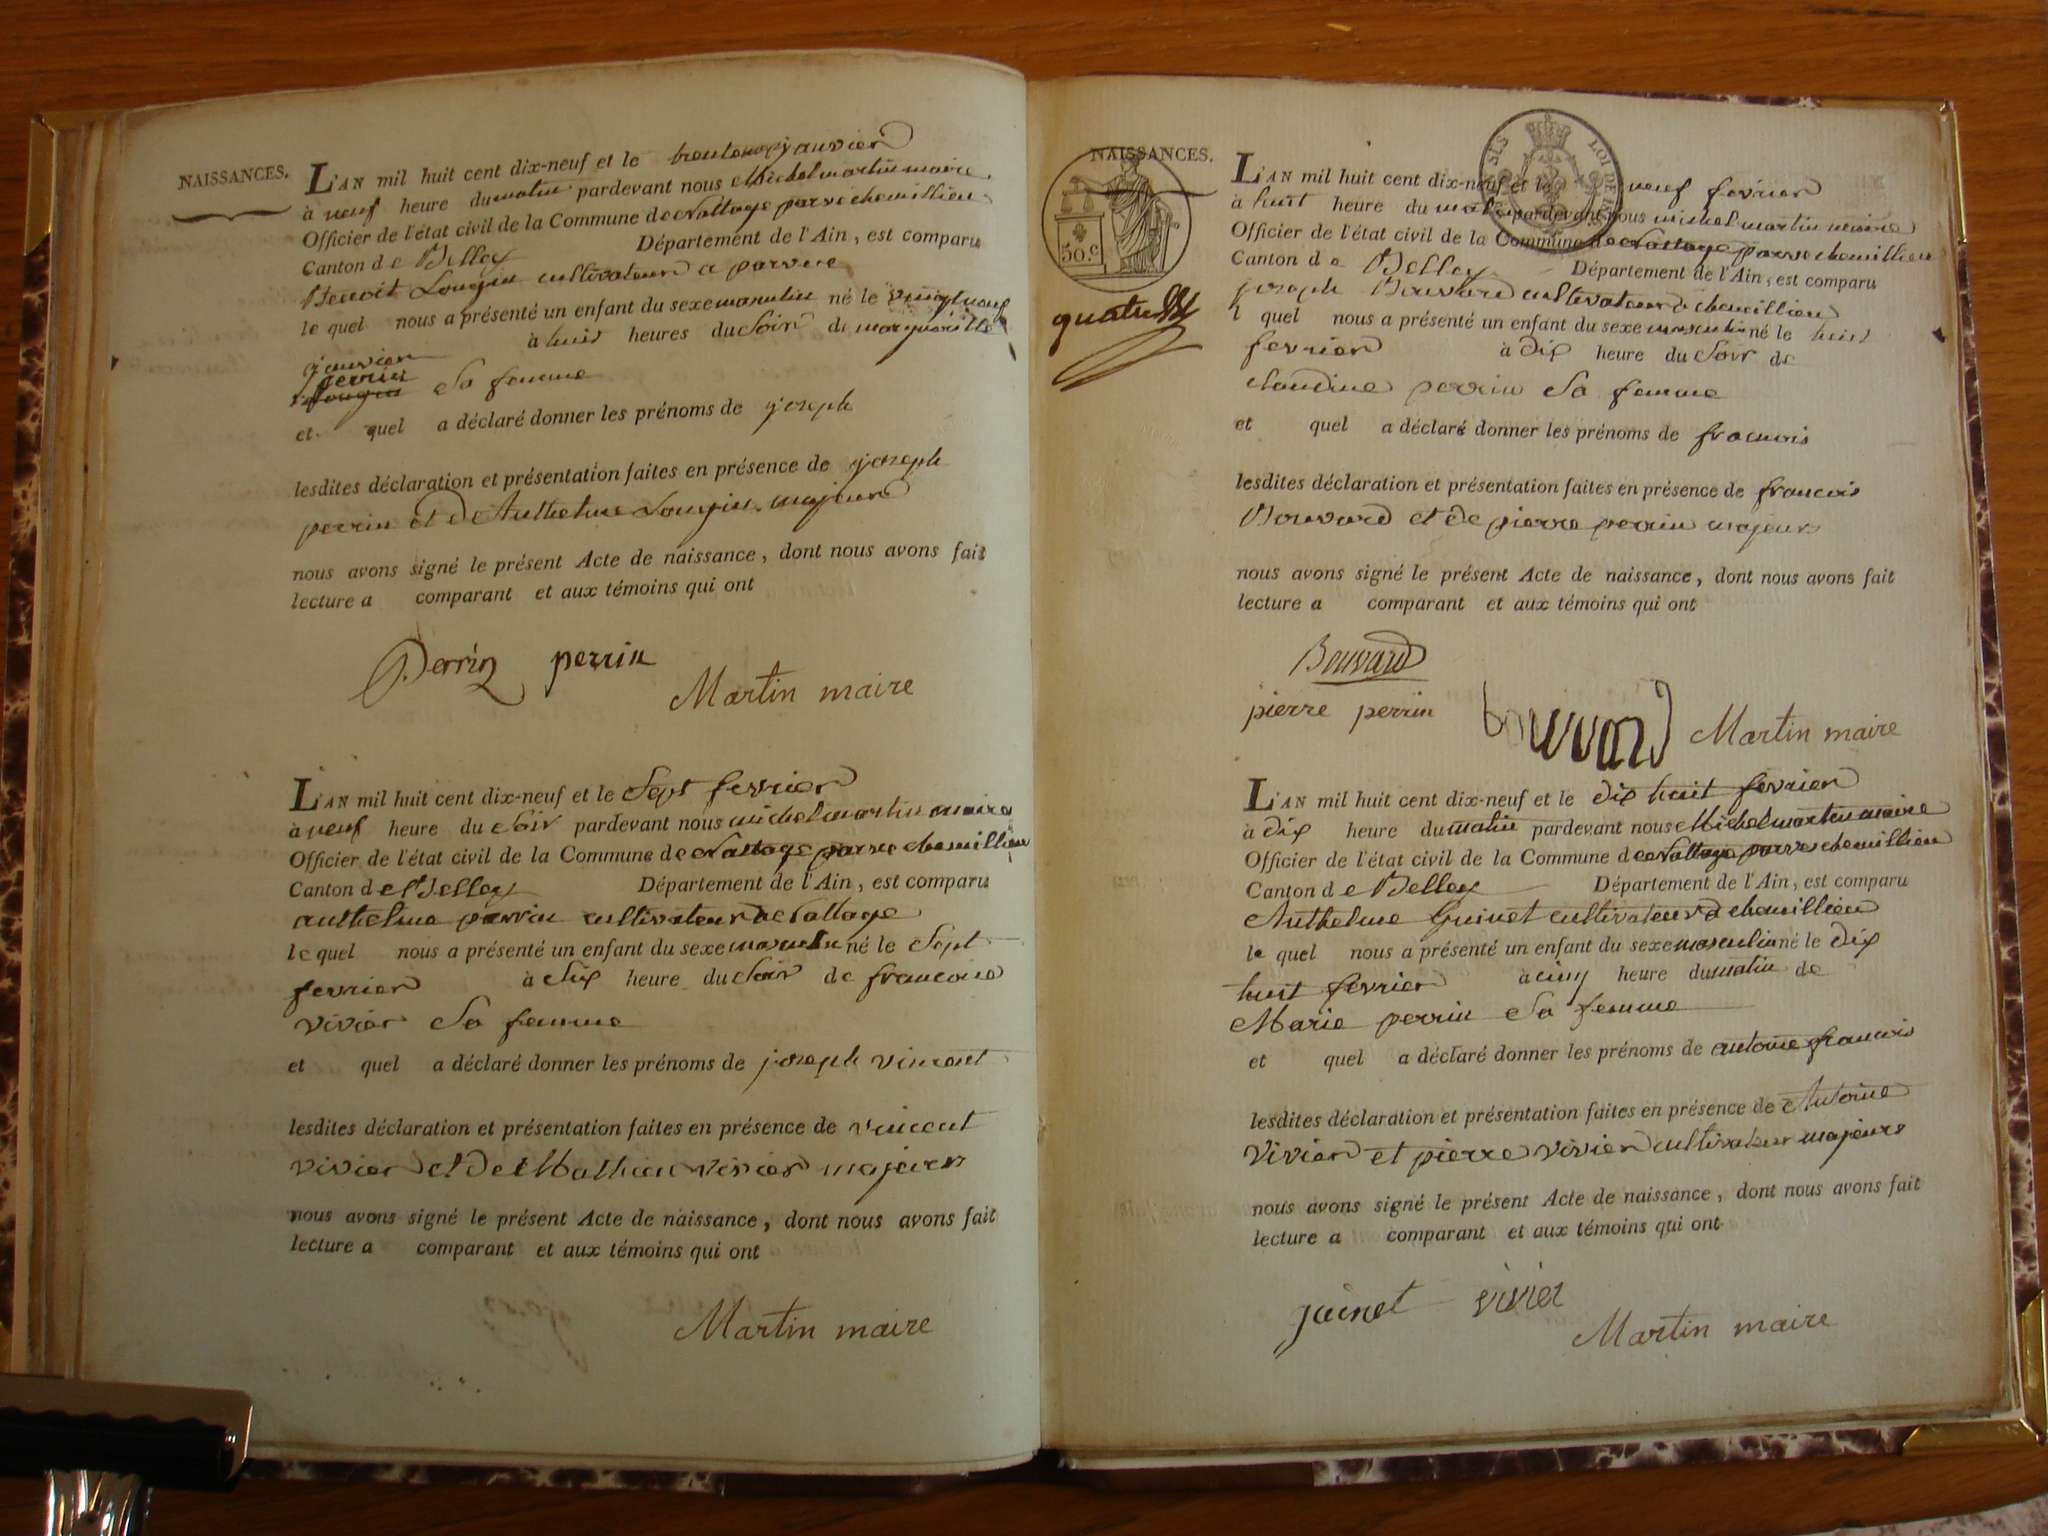 NAISSANCES.
L'AN mil huit cent dix-neuf et le janvier
à neuf heure du matin pardevant nous Michel martin maire
Officier de l'état civil de la Commune de parve chemillieu
Canton de Belley Département de l'Ain, est comparu
Benoit cultivateur a parvve
le quel nous a présenté un enfant du sexe masculin né le vingt neuf
janvier à huit heures du Soir de margueritte
perrin Sa femme
et quel a déclaré donner les prénoms de joseph
lesdites déclaration et présentation faites en présence de joseph
perrin et de Anthelme majeurs
nous avons signé le présent Acte de naissance, dont nous avons fait
lecture a comparant et aux témoins qui ont
Perrin perrin
Martin maire
L'AN mil huit cent dix-neuf et le Sept fevrier
à neuf heure du Soir pardevant nous michel martin maire
Officier de l'état civil de la Commune de parve chemillieu
Canton de Belley Département de l'Ain, est comparu
anthelme perrin cultivateur
le quel nous a présenté un enfant du sexe masculin né le Sept
fevrier à Six heure du Soir de francoise
vivier Sa femme
et quel a déclaré donner les prénoms de joseph vincent
lesdites déclaration et présentation faites en présence de vincent
vivier et de Mathieu vivier majeurs
nous avons signé le présent Acte de naissance, dont nous avons fait
lecture a comparant et aux témoins qui ont
Martin maire
NAISSANCES.
50.c
LOI DE
L'AN mil huit cent dix-neuf et le neuf fevrier
à huit heure du matin pardevant nous michel martin maire
Officier de l'état civil de la Commune de parve chemillieu
Canton de Belley Département de l'Ain, est comparu
joseph Bouvard cultivateur a chemillieu
l quel nous a présenté un enfant du sexe masculin né le huit
fevrier à dix heure du Soir de
claudine perrin Sa femme
et quel a déclaré donner les prénoms de francois
lesdites déclaration et présentation faites en présence de francois
Bouvard et de pierre perrin majeurs
nous avons signé le présent Acte de naissance, dont nous avons fait
lecture a comparant et aux témoins qui ont
Bouvard
pierre perrin bouvard Martin maire
L'AN mil huit cent dix-neuf et le dix huit fevrier
à dix heure du matin pardevant nous Michel martin maire
Officier de l'état civil de la Commune de parve chemillieu
Canton de Belley Département de l'Ain, est comparu
Anthelme Guinet cultivateur a chemillieu
le quel nous a présenté un enfant du sexe masculin né le dix
huit fevrier à cinq heure du matin de
Marie perrin Sa femme
et quel a déclaré donner les prénoms de antoine francois
lesdites déclaration et présentation faites en présence de Antoine
Vivier et pierre vivier cultivateur majeurs
nous avons signé le présent Acte de naissance, dont nous avons fait
lecture a comparant et aux témoins qui ont
guinet vivier
Martin maire